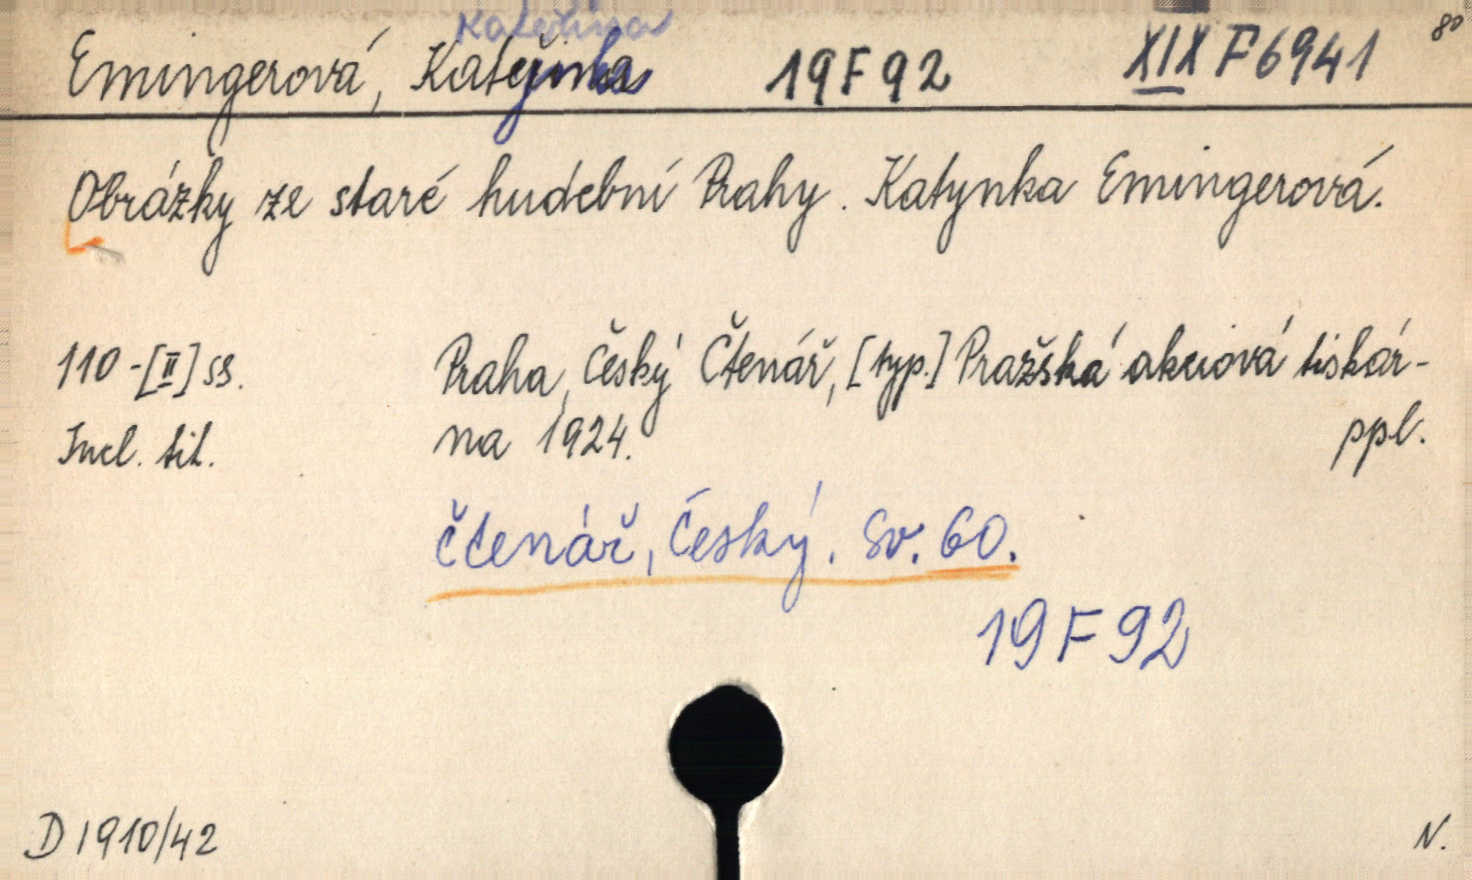 Kateřina 8º
Emingerová, 19 F 92 XIX F 6941
Obrázky ze staré hudební Prahy. Katynka Emingerová.
110-[II] ss. Praha, Český Čtenář, [typ.] Pražská akciová tiskár-
Incl. tit. na 1924. ppl.
Čtenář, Český. Sv. 60.
19 F 92
D 1910/42 N.